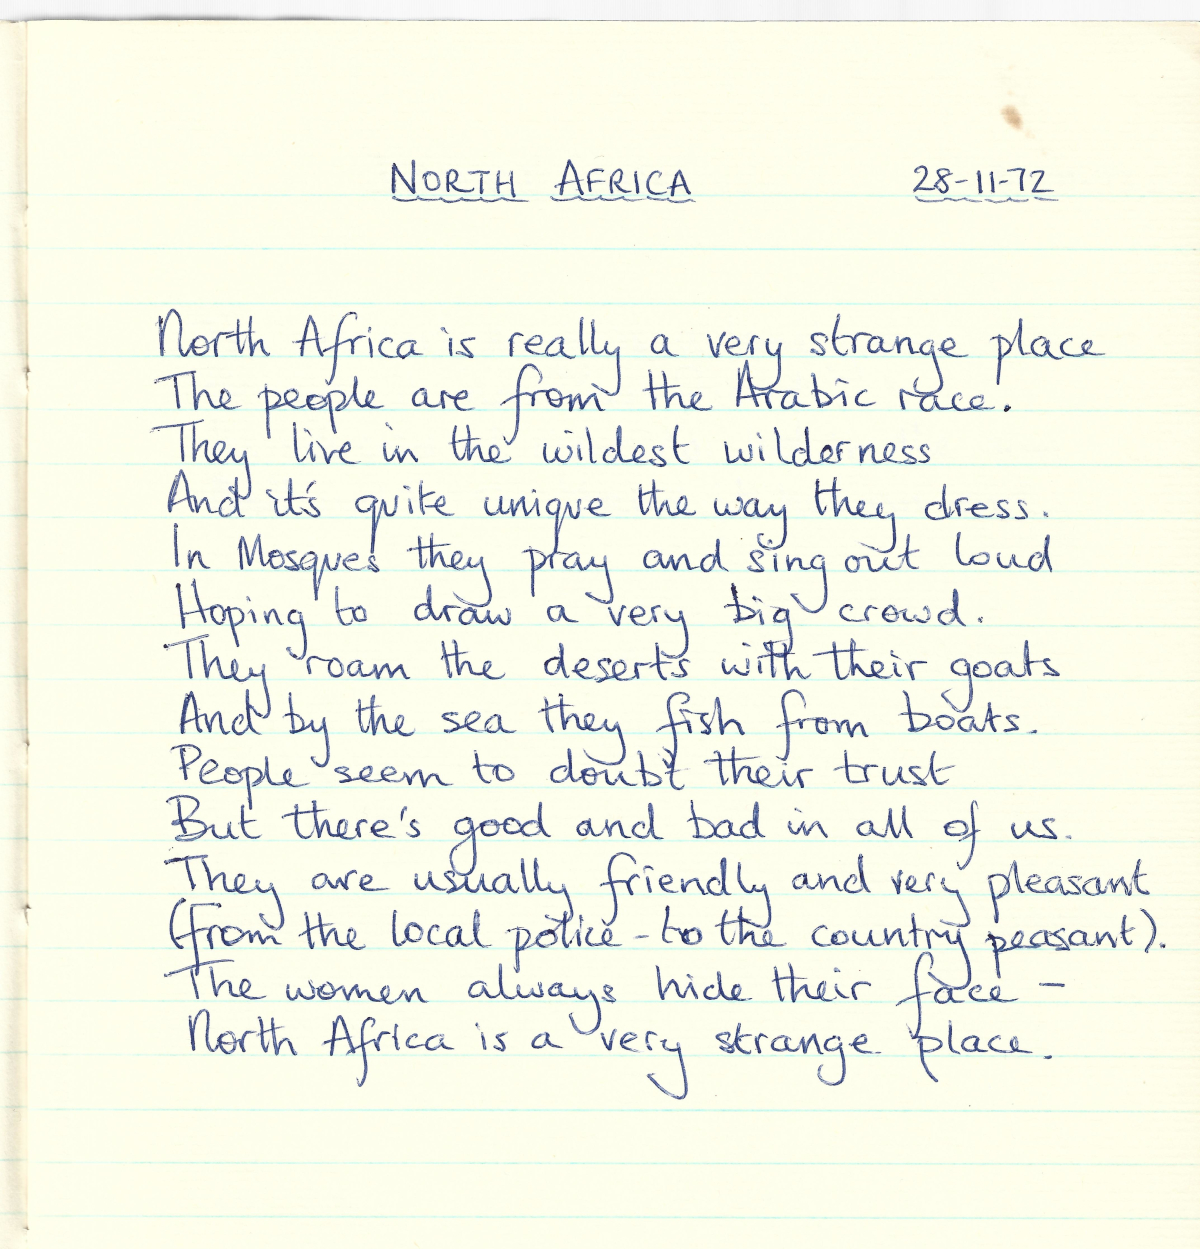 NORTH AFRICA 28-11-72
North Africa is really a very strange place
The people are from the Arabic race.
They live in the wildest wilderness
And it's quite unique the way they dress.
In Mosques they pray and sing out loud
Hoping to draw a very big crowd.
They roam the deserts with their goats
And by the sea they fish from boats.
People seem to doubt their trust
But there's good and bad in all of us.
They are usually friendly and very pleasant
(from the local police - to the country peasant).
The women always hide their face -
North Africa is a very strange place.